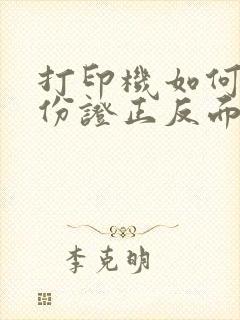 打印機如何
份證正反而
李克明